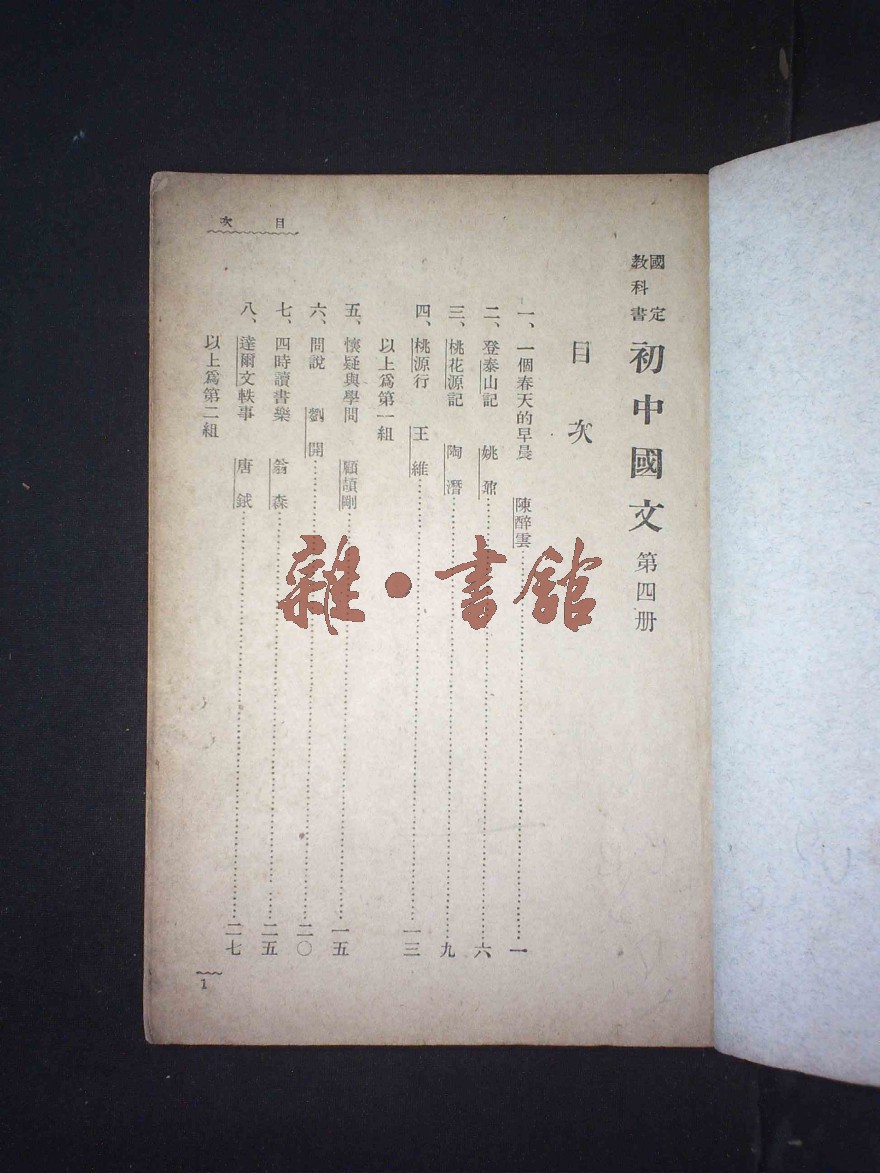 國定教科書 初中國文 第四册
目次
一、一個春天的早晨 陳醉雲 一
二、登泰山記 姚鼐 六
三、桃花源記 陶潛 九
四、桃源行 王維 一三
以上爲第一組
五、懷疑與學問 顧頡剛 一五
六、問說 劉開 二〇
七、四時讀書樂 翁森 二五
八、達爾文軼事 唐鉞 二七
以上爲第二組
目次
1
雜·書館